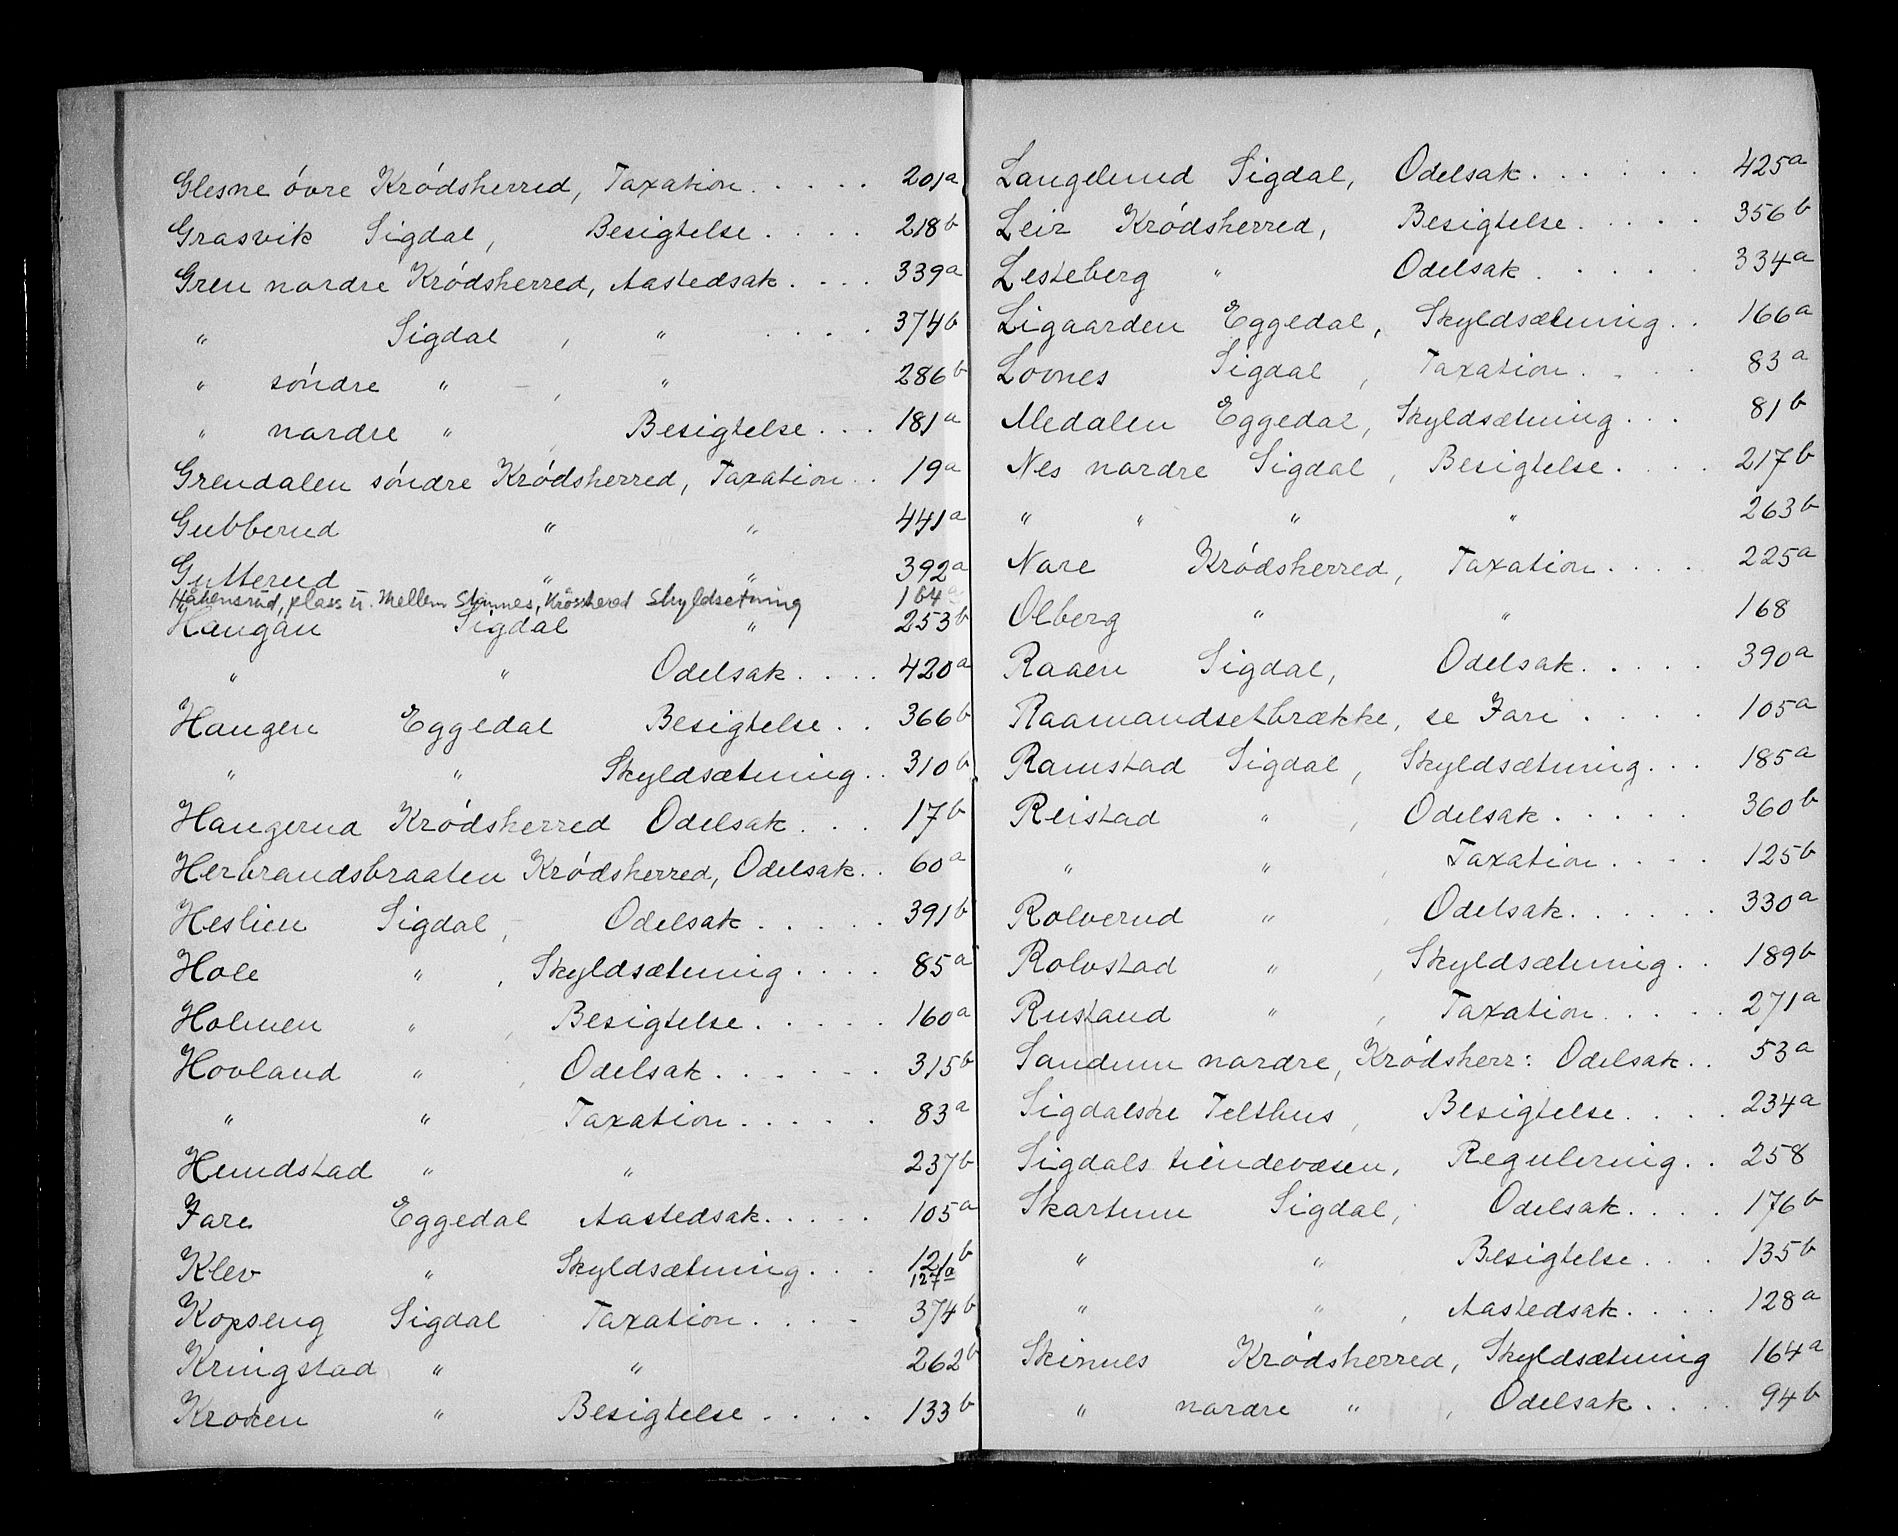 Glesne óvre Kródsherred, Taxation . . . . . 201a
Grasvik Sigdal, Besigtelse . . . . 218b
Gren nordre Kródsherred, Aastedsak . . . . 339a
" Sigdal , " . . . 374b
" söndre " , " 286b
" nordre " , Besigtelse . . . 181a
Grendalen söndre Kródsherred, Taxation . . 19a
Gubberud " " 441a
Gutterud " " 392a
Håkensrud, plass u. Mellem Skinnes, Krödsherred Skyldsetning 164a
Haugan Sigdal " 253b
" " Odelsak . . . . 420a
Haugen Eggedal Besigtelse . . 366b
" " Skyldsætning . . 310b
Haugerud Kródsherred Odelsak . . . 17b
Herbrandsbraaten Kródsherred, Odelsak . . 60a
Heslien Sigdal, Odelsak . . . . . 391b
Hole " , Skyldsætning . . . . 85a
Holmen " , Besigtelse . . . . . 160a
Hovland " , Odelsak . . . . . . 315b
" " Taxation . . . . . 83a
Hundstad " " 237b
Jare Eggedal Aastedsak . . . . . 105a
Klev " Skyldsætning . . . 121b
127a
Kopseng Sigdal Taxation . . . . 374b
Kringstad " " 262b
Kroken " Besigtelse . . . . 133b
Langelund Sigdal, Odelsak . . . . . . 425a
Leir Kródsherred, Besigtelse . . . . 356b
Lesteberg " Odelsak . . . . . 334a
Ligaarden Eggedal, Skyldsætning . . 166a
Lovnes Sigdal , Taxation . . . . 83a
Medalen Eggedal, Skyldsætning . . . 81b
Nes nordre Sigdal , Besigtelse . . . . 217b
" " " " 263b
Nare Kródsherred, Taxation . . . . 225a
Olberg " " 168
Raaen Sigdal, Odelsak . . . . . 390a
Raamandsetbrække, se Jare . . . . 105a
Ramstad Sigdal, Skyldsætning . . . 185a
Reistad " , Odelsak . . . . . 360b
" " , Taxation . . . . 125b
Rolverud " , Odelsak . . . . . . 330a
Rolvstad " , Skyldsætning . . 189b
Rustand " , Taxation . . . . . 271a
Sandum nordre, Kródsherr: Odelsak . . 53a
Sigdalske Telthus , Besigtelse . . . . 234a
Sigdals tiendevæsen, Regulering . . 258
Skartum Sigdal, Odelsak . . . . 176b
" " Besigtelse . . . 135b
" " , Aastedsak . . . . 128a
Skinnes Kródsherred, Skyldsætning 164a
" nordre " , Odelsak . . . . 94b